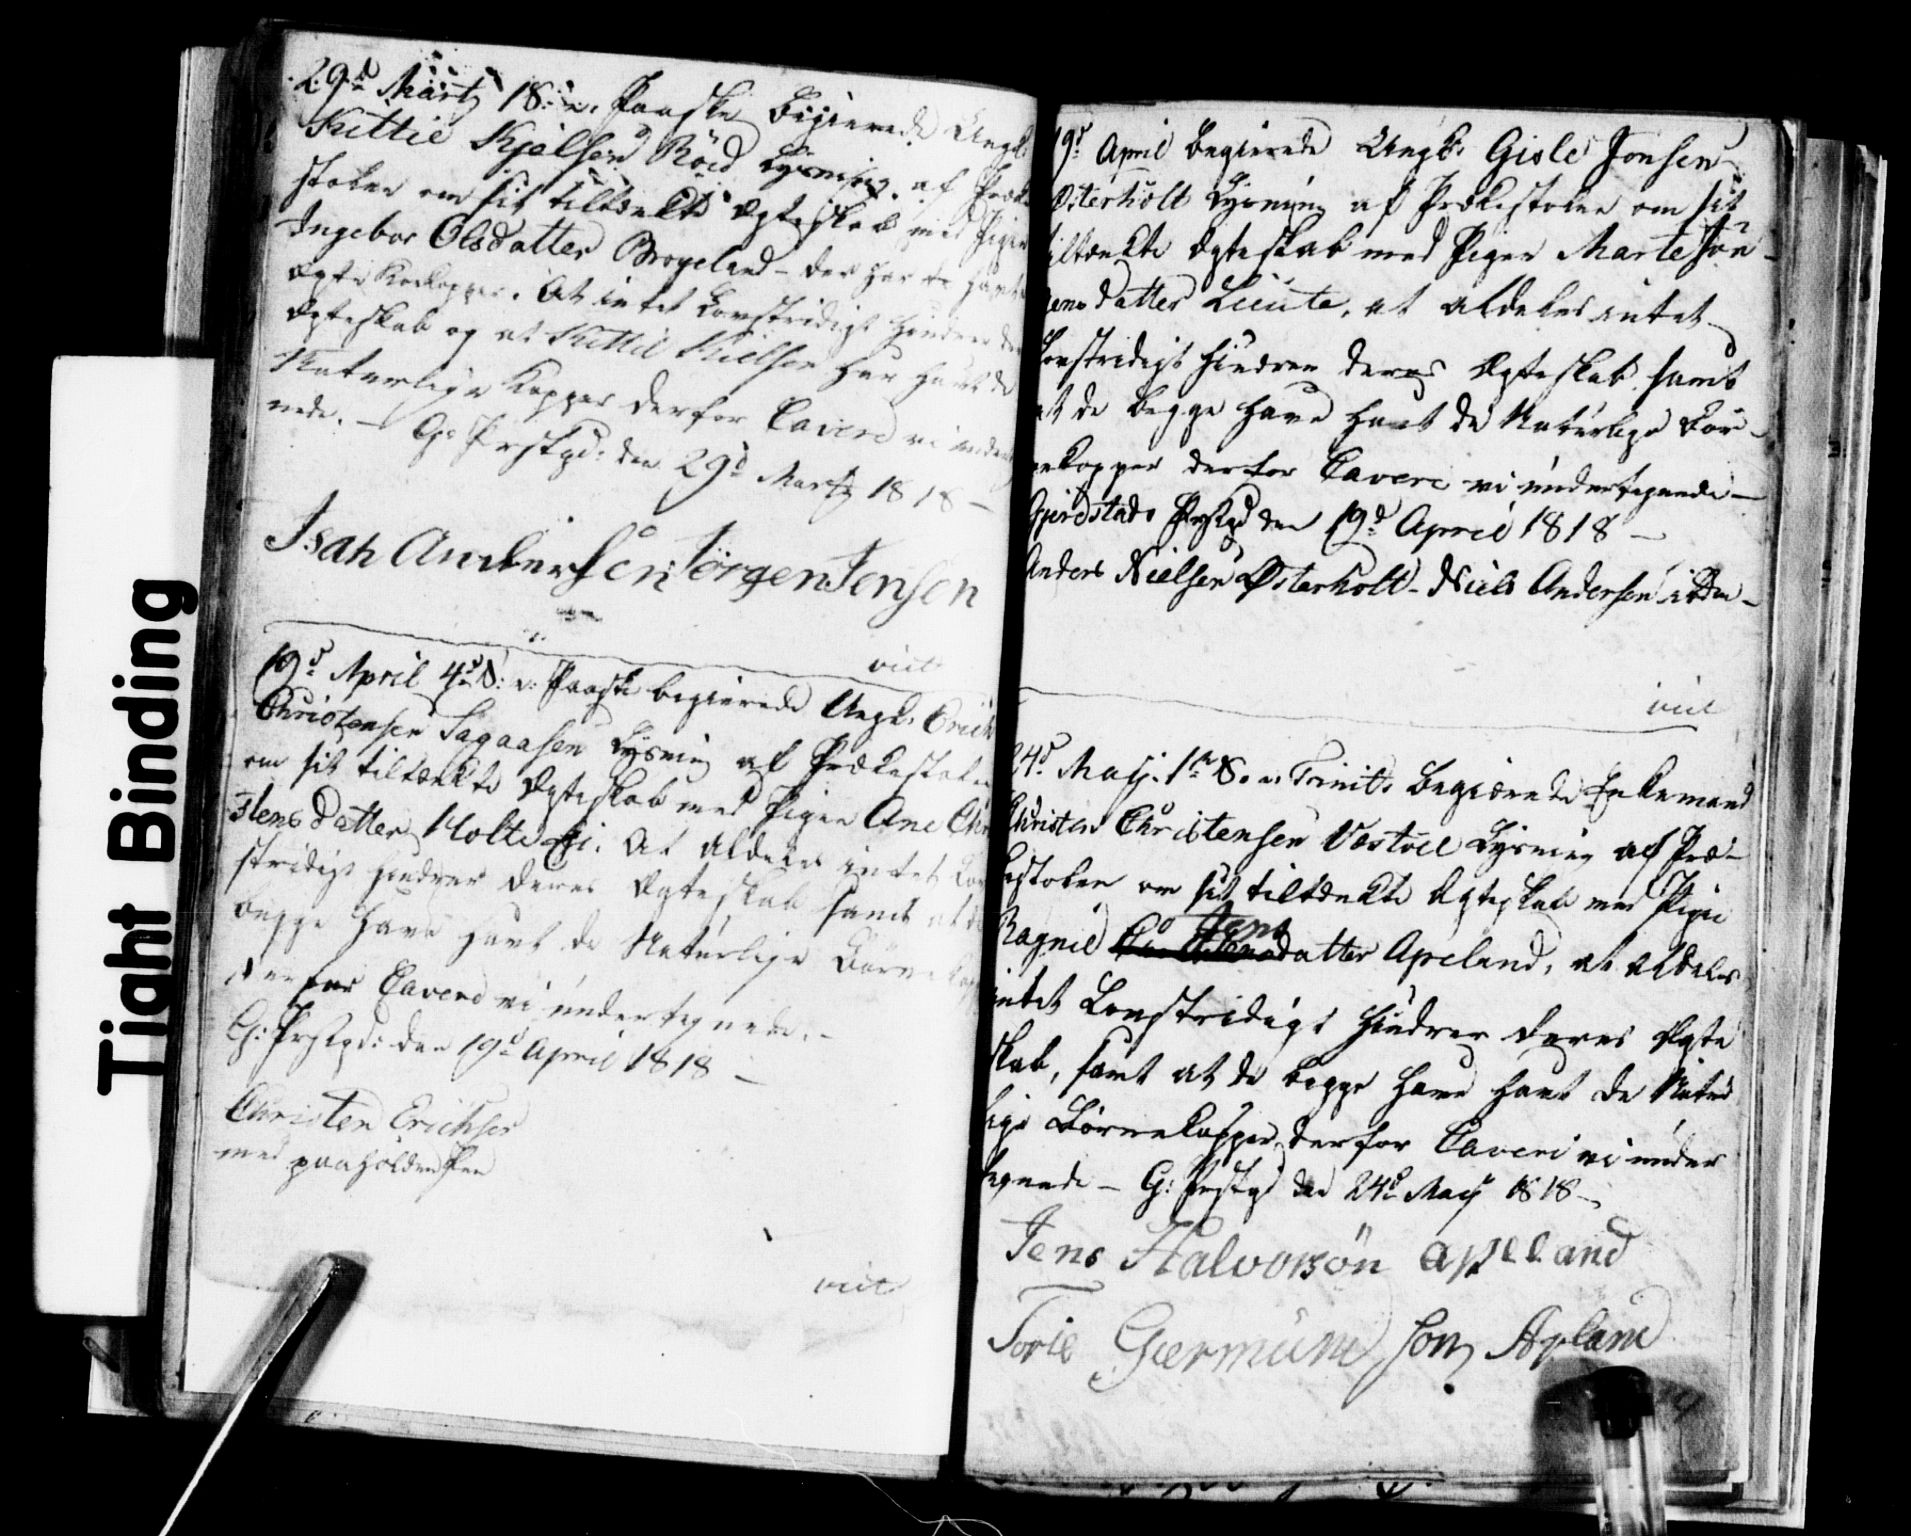 29d Martz 1 S: e. Paaske begierede Ungk.
Kittil Kjelsen Röed Lysning af Præke
stolen om sit tiltænkte Ægteskab med Pigen
Ingebor Olsdatter Brogeland - der har havt
ægte Kokopper. At intet Lovstridigt hindrer
Ægteskab og at Kittil Kielsen har havt de
Naturlige Kopper derfor Cavere vi under
nede. - G: Prstgd: den 29d Martz 1818 -
Isak Andersen Jörgen Jensen
viet
19d April 4d S: e: Paaske begierede Ungk. Erich
Christensen Sagaasen Lysning af Prækestolen
om sit tiltænkte Ægteskab med Pigen Ane Chri
stensdatter Holte At aldeles intet Lov
stridigt hindrer deres Ægteskab samt at de
begge have havt de Naturlige Börne
derfor Cavere vi undertegnede. -
G: Prstgd: den 19d April 1818 -
Christen Erichsen
med paaholden Pen
viet
19d April begierede Ungk. Gisle Jonsen
Østerholt Lysning af Prækestolen om sit
tiltænkte Ægteskab med Pigen Marte Jör-
gensdatter Lunte, at aldeles intet
Lovstridigt hindrer deres Ægteskab samt
at de begge have havt de Naturlige Bör-
nekopper derfor Cavere vi undertegnede -
Gjerestads Prstgd den 19d April 1818 -
Anders Nielsen Østerholt - Niels Andersen ibdm -
viet
24d Maij. 1te S. e. Trinit. begierede Enkemand
Christen Christensen Vestöel Lysning af Præ-
kestolen om sit tiltænkte Ægteskab med Pigen
Ragnil Jensdatter Apeland, at aldeles
intet Lovstridigt hindrer deres Ægte
skab, samt at de begge have havt de Natur
lige Börnekopper, derfor Cavere vi under
tegnede - G: Prstgd den 24d Maij 1818 -
Jens Halvorsön Apeland
Torie Giermund sön Apland